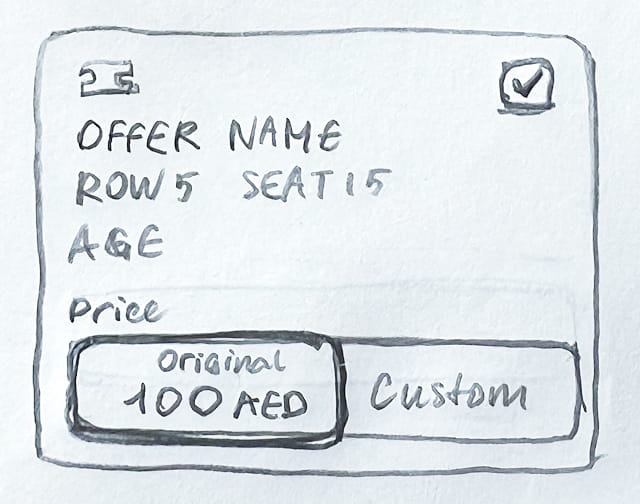 OFFER NAME
ROW 5 SEAT 15
AGE
Price
Original
100 AED
Custom